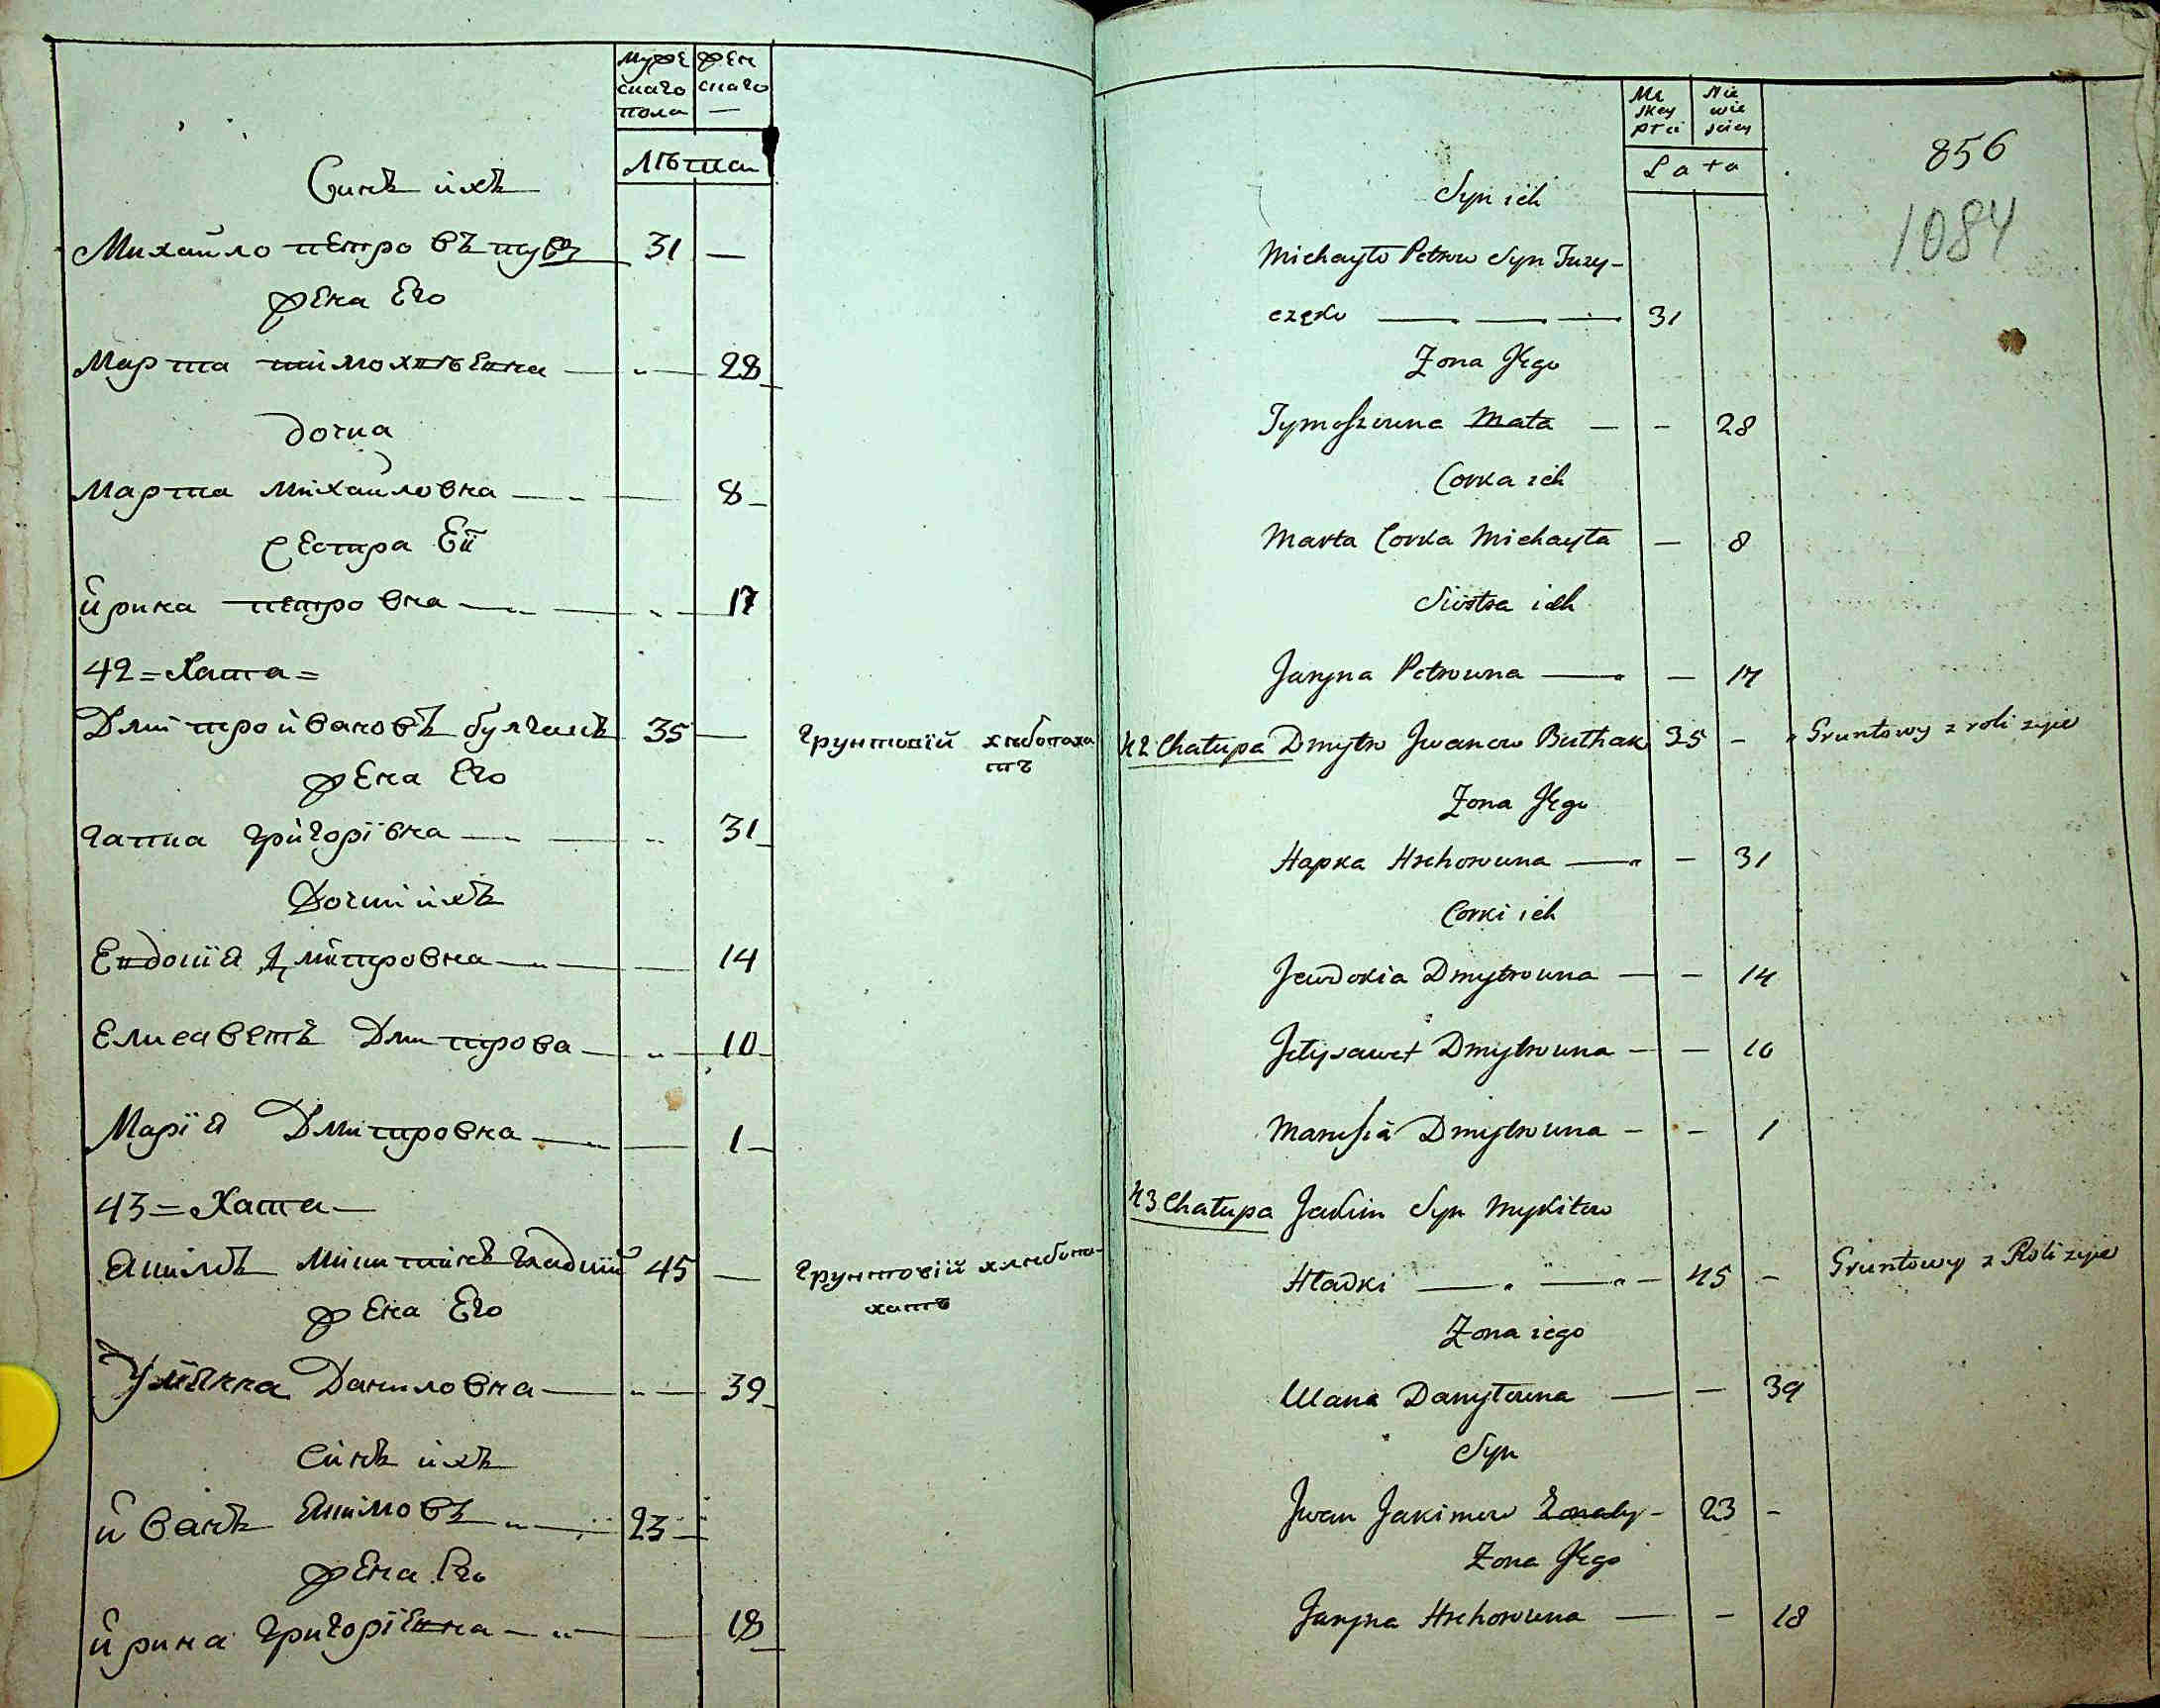 муже
скаго
пола
жен
скаго
Лѣта
Синъ ихъ
Михайло петро въ 31 —
жена Его
Марта тимохвѣевна — 28
дочка
Марта михайловка — 8
сестра Еї
йрина петровка — 17
42 = Хата =
Дмитро йвановъ булгакъ 35 — грунтовій хлебопаха
тъ
жена Его
гапка григорївка — 31
Дочки ихъ
Евдокїя Дмитровка — 14
Елисаветъ Дмитрова — 10
Марїя Дмитровка — 1
43 = Хата —
Якимъ микитинъ гладкий 45 — грунтовій хлебопа-
хатъ
жена Его
Ульянна Даниловка — 39
синъ ихъ
йванъ Якимовъ 23 —
жена Его
йрина григорїевна — 18
Mę
skey
płci
Nie
wie
sciey
Lata
856
1084
Syn ich
Michayło Petrow Syn Juzy-
częko 31
Zona Jego
Tymoszowna Mata — - 28
Corka ich
Marta Corka Michayła — 8
Siostra ich
Jaryna Petrowna — — 17
42 Chałupa Dmytro Jwanow Bułhak 35 - Gruntowy z roli zyie
Zona Jego
Hapka Hrehorowna — - 31
Corki ich
Jewdokia Dmytrowna — - 14
Jełysawet Dmytrowna — — 10
Marusia Dmytrowna - - 1
43 Chałupa Jakim Syn Mykitow
Hładki — 45 - Gruntowy z Roli zyie
Zona iego
Ulana Danyłowna — — 39
Syn
Jwan Jakimow - 23 -
Zona Jego
Jaryna Hrehorowna — - 18